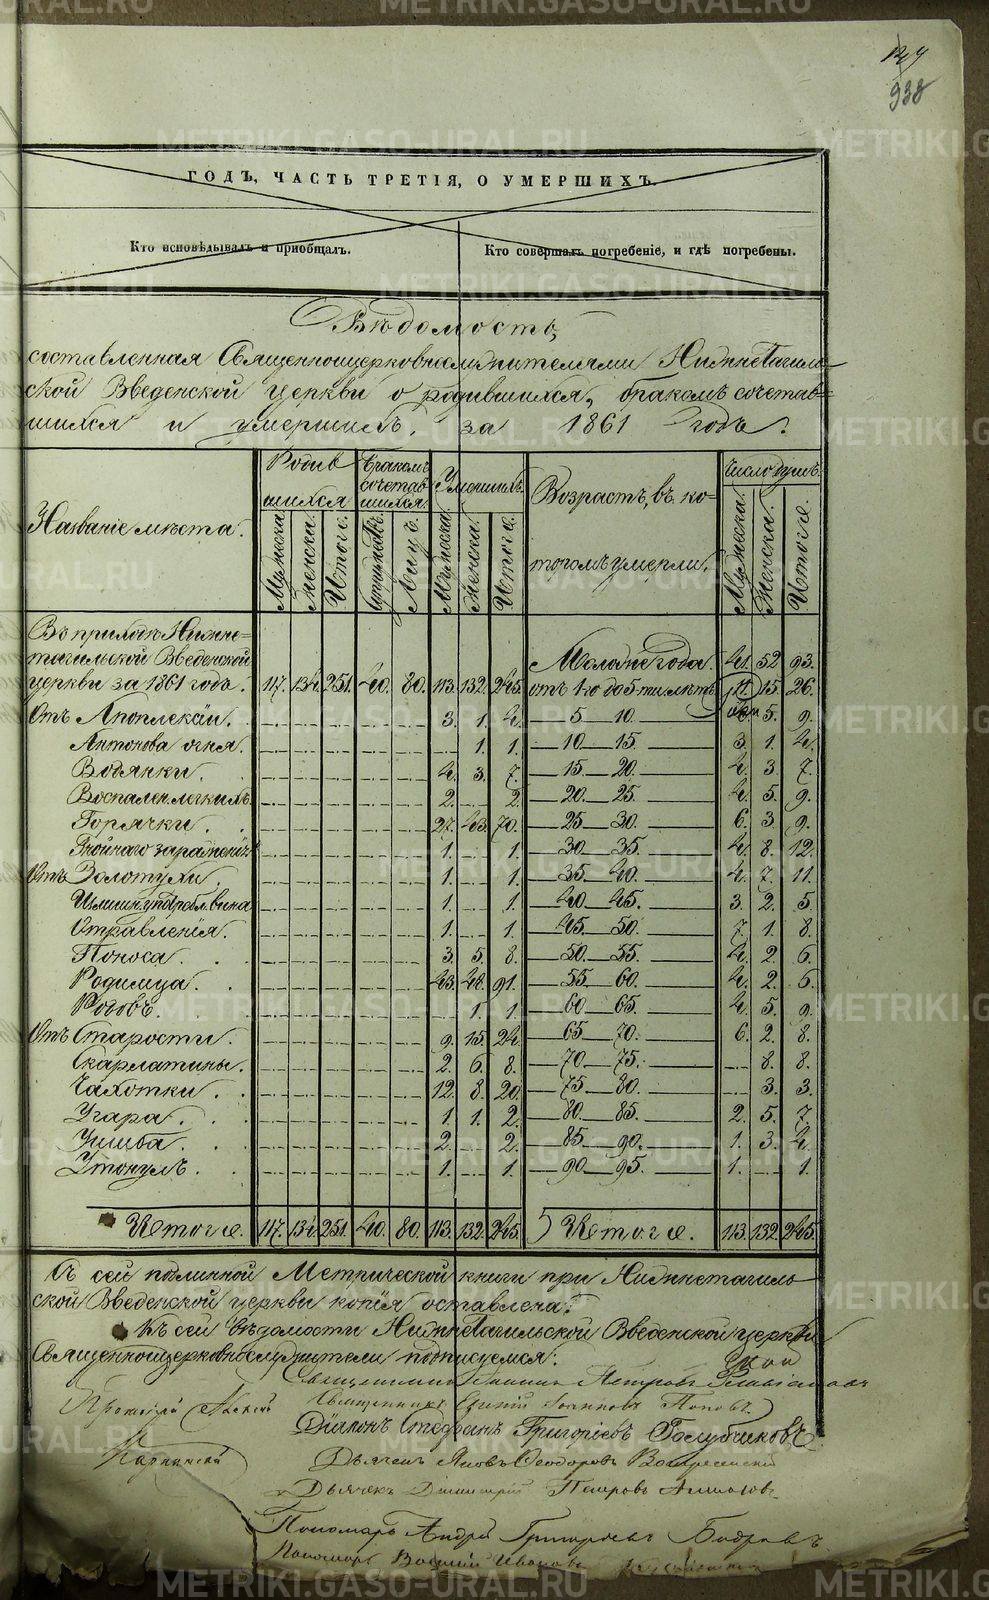 938
ГОДЪ, ЧАСТЬ ТРЕТІЯ, О УМЕРШИХЪ.
Кто исповѣдывалъ и пріобщалъ.
Кто совершалъ погребеніе, и гдѣ погребены.
Вѣдомость,
составленная Священноцерковнослужителями Нижнетагиль-
ской Введенской церкви о родившихся, бракомъ сочетав-
шихся и умершихъ, за 1861 годъ.
Названіе мѣста.
Родив
шихся
Мужеска
Женска.
Итого.
Бракомъ
сочетав-
шихся.
Лицъ.
Умершихъ.
Мужеска.
Женска.
Итого.
Возрастъ, въ ко-
торомъ умерли.
Число душъ.
Мужеска.
Женска.
Итого.
Въ приходѣ Нижне-
тагильской Введенской
церкви за 1861 годъ. 117. 134. 251. 40. 80. 113. 132. 245.
Моложе года. 41. 52. 93.
отъ 1-го до 5-ти лѣтъ 11. 15. 26.
Отъ Апоплексіи. 3. 1. 4.
5. 10. 5. 9.
Антонова огня. 1. 1.
10 15. 3. 1. 4.
Водянки. 4. 3. 7.
15. 20. 4. 3. 7.
Воспален. легкихъ. 2. 2.
20. 25. 4. 5. 9.
Горячки 27. 43. 70.
25 30. 6. 3. 9.
Гнойнаго зараженія 1. 1.
30 35. 4. 8. 12.
Отъ Золотухи. 1. 1.
35. 40. 4. 7. 11.
1. 1.
40 45. 3. 2. 5
Отравленія. 1. 1.
45. 50. 7. 1. 8.
Поноса. 3. 5. 8.
50. 55. 4. 2. 6.
Родимца. 43. 48. 91.
55. 60. 4. 2. 6.
Родовъ. 1. 1.
60 65. 4. 5. 9.
Отъ Старости. 9. 15. 24.
65. 70. 6. 2. 8.
Скарлатины. 2. 6. 8.
70. 75. 8. 8.
Чахотки. 12. 8. 20.
75. 80. 3. 3.
Угара. 1. 1. 2.
80. 85. 2. 5. 7.
Ушиба. 2. 2.
85. 90. 1. 3. 4.
Утонулъ. 1. 1.
90 95. 1. 1.
Итого. 117. 134. 251. 40. 80. 113. 132. 245.
Итого. 113. 132. 245.
Съ сей подлинной Метрической книги при Нижнетагиль-
ской Введенской церкви копія оставлена.
Къ сей вѣдомости Нижнетагильской Введенской церкви
Священноцерковнослужители подписуемся:
Священникъ Петровъ
Священникъ Іоанновъ Поповъ.
Діаконъ Стефанъ Григоріевъ Голубчиковъ.
Дьячекъ Яковъ Ѳеодоровъ Воскресенскій
Дьячекъ Димитрій Петровъ
Пономарь Андрей Григорьевъ Бобровъ.
Пономарь Василій Ивановъ
METRIKI.GASO-URAL.RU